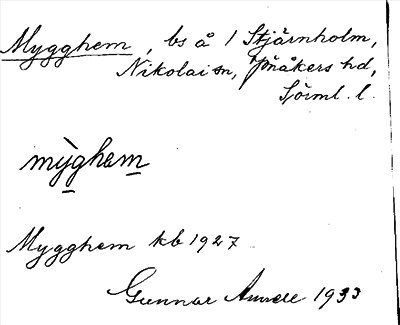 Mygghem, bs å 1 Stjärnholm,
Nikolai sn, Rönö hd,
Sörml. l.
mỳghem
Mygghem kb 1927
Gunnar 1933